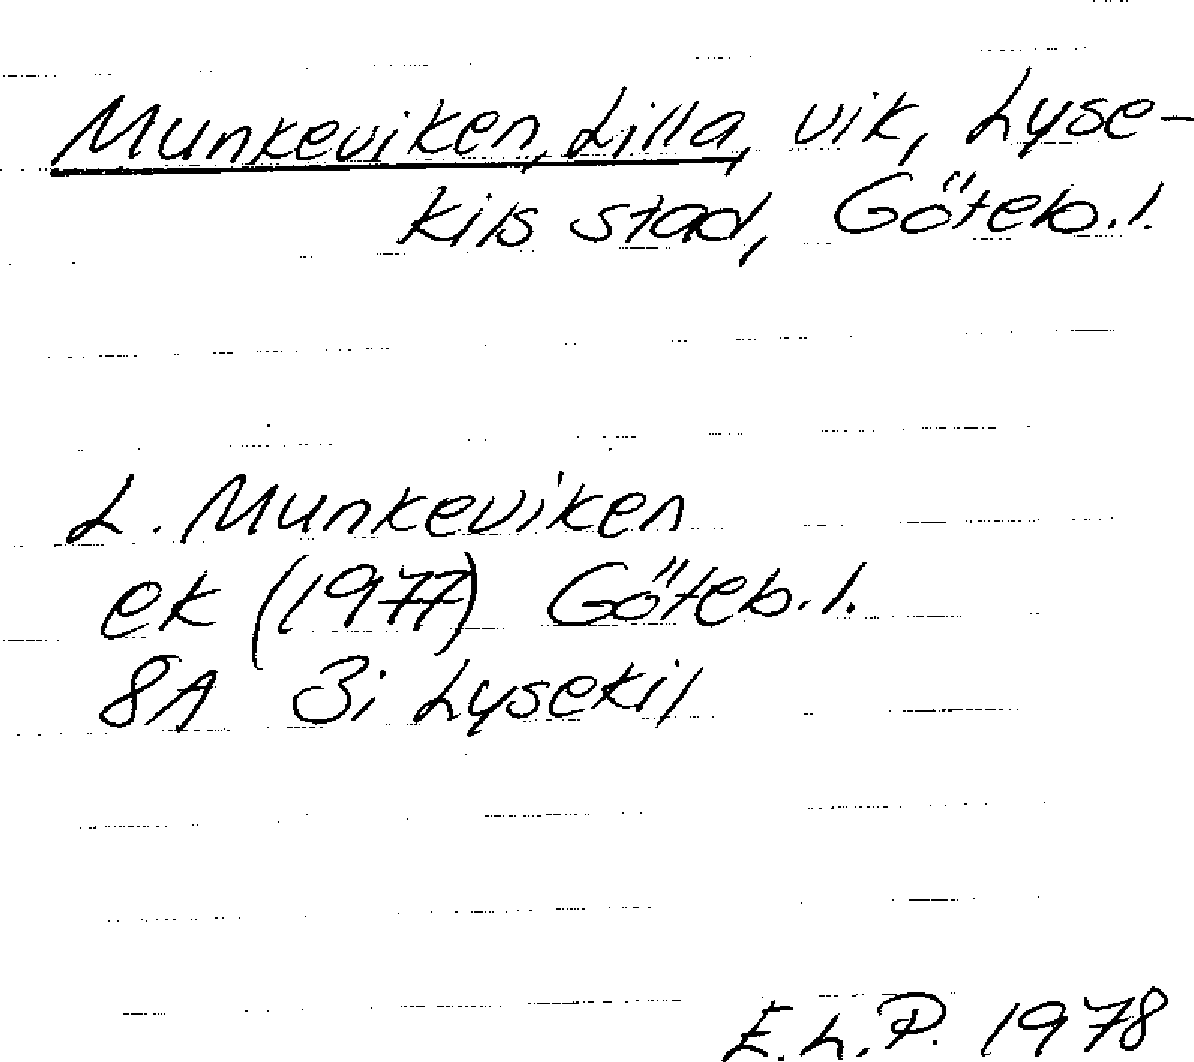 Munkeviken, Lilla, vik, Lyse-
kils stad, Göteb.l.
L. Munkeviken
ek (1977) Göteb.l.
8A 3i Lysekil
E.L.P. 1978